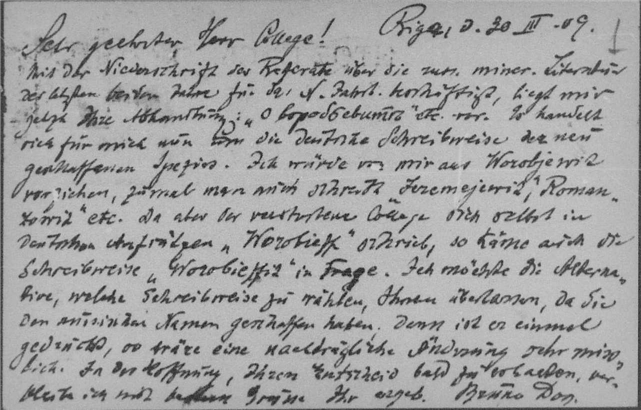 Riga, d. 30 III. 09.
Sehr geehrter Herr College!
Mit der Niederschrift des Referats über die russ. miner. Literatur
des letzten beiden Jahre für das N. Jahrb. beschäftigt, liegt mir
jetzt Ihre Abhandlung: „О воробьевитѣ" etc. vor. Es handelt
sich für mich nun um die deutsche Schreibweise der neu
geschaffenen Spezies. Ich würde von mir aus Worobjewit
vorziehen, zumal man auch schreibt Jeremejewit, Roman-
zowit" etc. Da aber der verstorbene College sich selbst in
deutschen Aufsätzen „Worobieff" schrieb, so käme auch die
Schreibweise „Worobieffit" in Frage. Ich möchte die Alterna-
tive, welche Schreibweise zu wählen, Ihnen überlassen, da Sie
den russischen Namen geschaffen haben. Denn ist er einmal
gedruckt, so wäre eine nachträgliche Änderung sehr miss-
lich. In der Hoffnung, Ihren Entscheid bald zu erhalten, ver-
bleibe ich mit bestem Grusse Ihr ergeb. Bruno Doss.